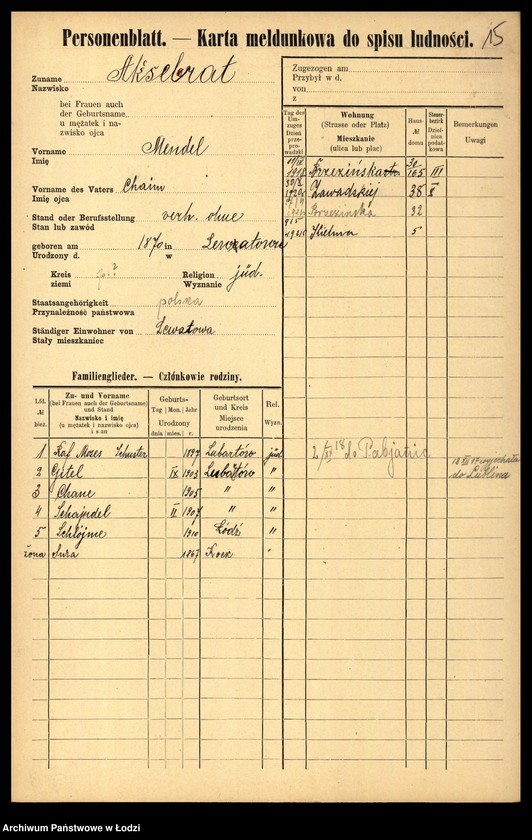 Personenblatt. — Karta meldunkowa do spisu ludności. 15
Zuname Akselrat
Nazwisko
bei Frauen auch
der Geburtsname
u mężatek i na-
zwisko ojca
Vorname Mendel
Imię
Vorname des Vaters Chaim
Imię ojca
Stand oder Berufsstellung verh. ohne
Stan lub zawód
geboren am 1870 in
Urodzony d. w
Kreis p. ? Religion jüd.
ziemi Wyznanie
Staatsangehörigkeit polska
Przynależność państwowa
Ständiger Einwohner von
Stały mieszkaniec
Zugezogen am
Przybył w d.
von
z
Tag des Um-zuges Dzień prze-prowadzki
Wohnung (Strasse oder Platz) Mieszkanie (ulica lub plac)
Haus- № domu
Steuer-bezirk Dziel-nica podat-kowa
Bemerkungen Uwagi
165 III
Zawadzkiej 38 I
Brzezińska 32
Kielmia 5
2/XI 18 do Pabjanic
wyjechała
do Lublina
Familienglieder. — Członkowie rodziny.
Lfd. № bież.
Zu- und Vorname (bei Frauen auch der Geburtsname) und Stand Nazwisko i imię (u mężatek i nazwisko ojca) i stan
Geburts- Tag Mon. Jahr Urodzony dnia mies. r.
Geburtsort und Kreis Miejsce urodzenia
Rel. Wyzn.
1 Mozes Schuster 1897 Lubartów jüd
2 Gitel IX 1903 Lubartów "
3 Chane 1905 " "
4 Schajndel II 1907 " "
5 Schlojme 1910 Łódź "
żona Sura 1867 Kock "
Archiwum Państwowe w Łodzi